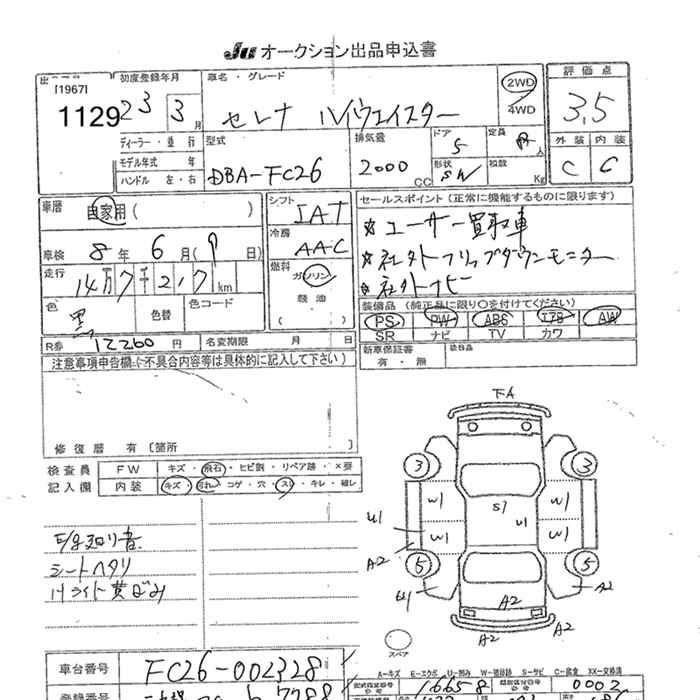 JU オークション出品申込書
[1967]
1129
初度登録年月
23 3月
車名・グレード
セレナ ハイウェイスター
2WD
4WD
評価点
3.5
ディーラー・並行
モデル年式 年
ハンドル 左・右
型式
DBA-FC26
排気量
2000 CC
ドア
5
定員
8人
形状
SW
積数
Kg
外装 内装
C C
車歴
自家用( )
シフト
IAT
車検 8年 6月(9日)
冷房
AAC
走行
14万7千217km
燃料
ガソリン
軽油
( )
色
黒
色替
色コード
R券 12260円
名変期限 月 日
セールスポイント(正常に機能するものに限ります)
★ユーザー買取車
★社外フリップダウンモニター
★社外ナビ
装備品(純正品に限り〇を付けてください)
PS PW ABS エアB AW
SR ナビ TV カワ
新車保証書
有・無
注意事項申告欄(不具合内容等は具体的に記入して下さい)
修復歴 有〔箇所 〕
検査員
記入欄
FW キズ・飛石・ヒビ割・リペア跡・×要
内装 キズ・汚れ・コゲ・穴・スレ・キレ・破レ
シートヘタリ
ハライト黄ばみ
FA
3 3
W1 W1
S1
U1 U1
W1 W1
A2
5 5
U1 A2
A2
A2 A2
スペア
A-キズ E-エクボ U-凹み W-補修跡 S-サビ C-腐食 XX-交換済
車台番号
FC26-002328
16658
0002